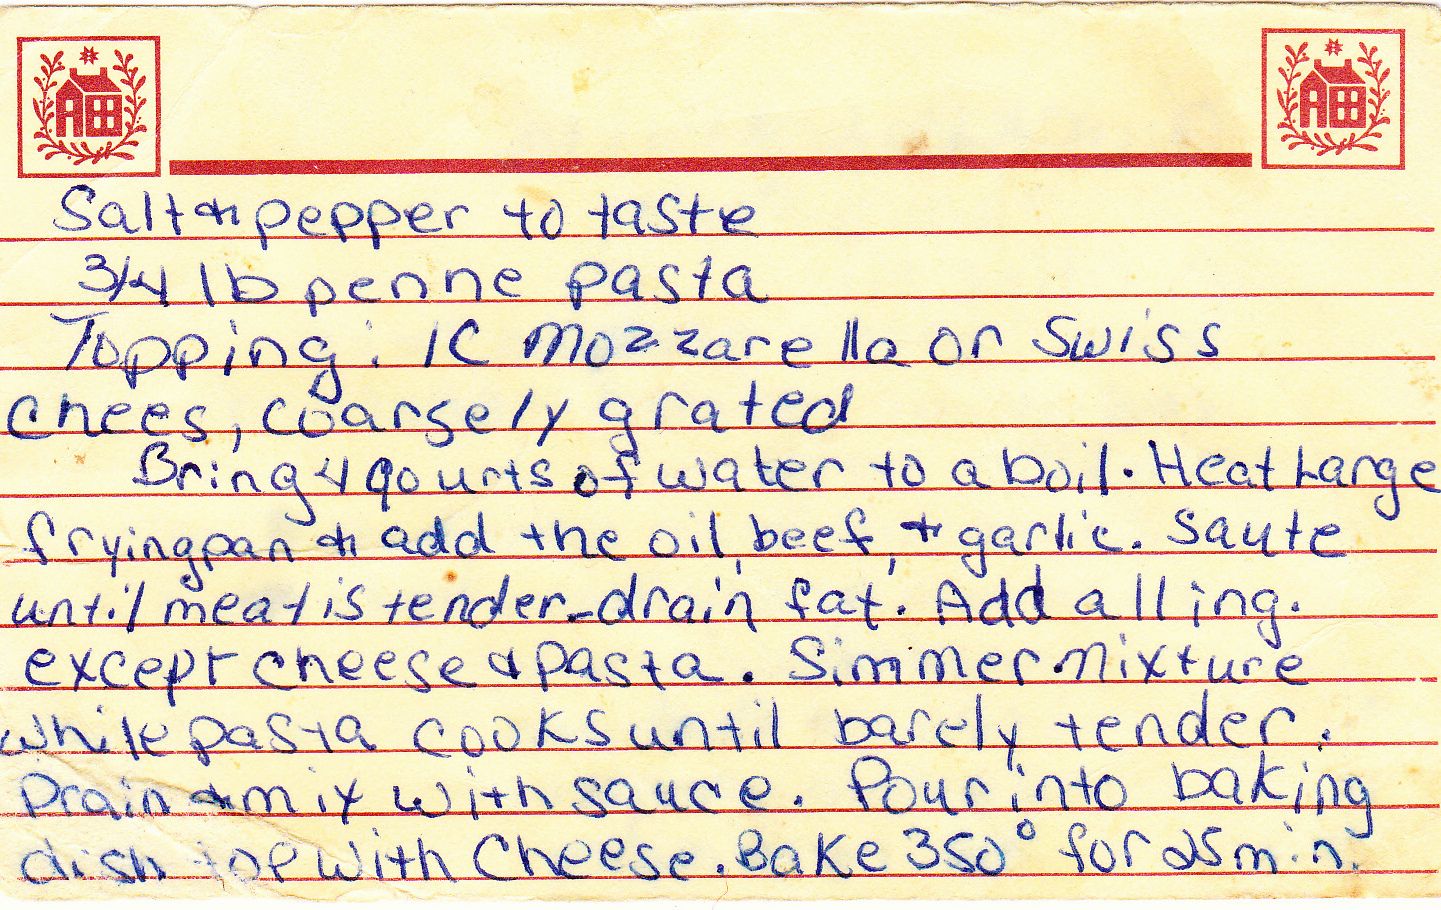 Salt & pepper to taste
3/4 lb penne pasta
Topping: 1C Mozzarella or Swiss
chees, coarsely grated
Bring 4 qourts of water to a boil. Heat Large
fryingpan & add the oil, beef, & garlic. Saute
until meat is tender - drain fat. Add all ing.
except cheese & pasta. Simmer mixture
while pasta cooks until barely tender.
Drain & mix with sauce. Pour into baking
dish top with Cheese. Bake 350° for 25 min.